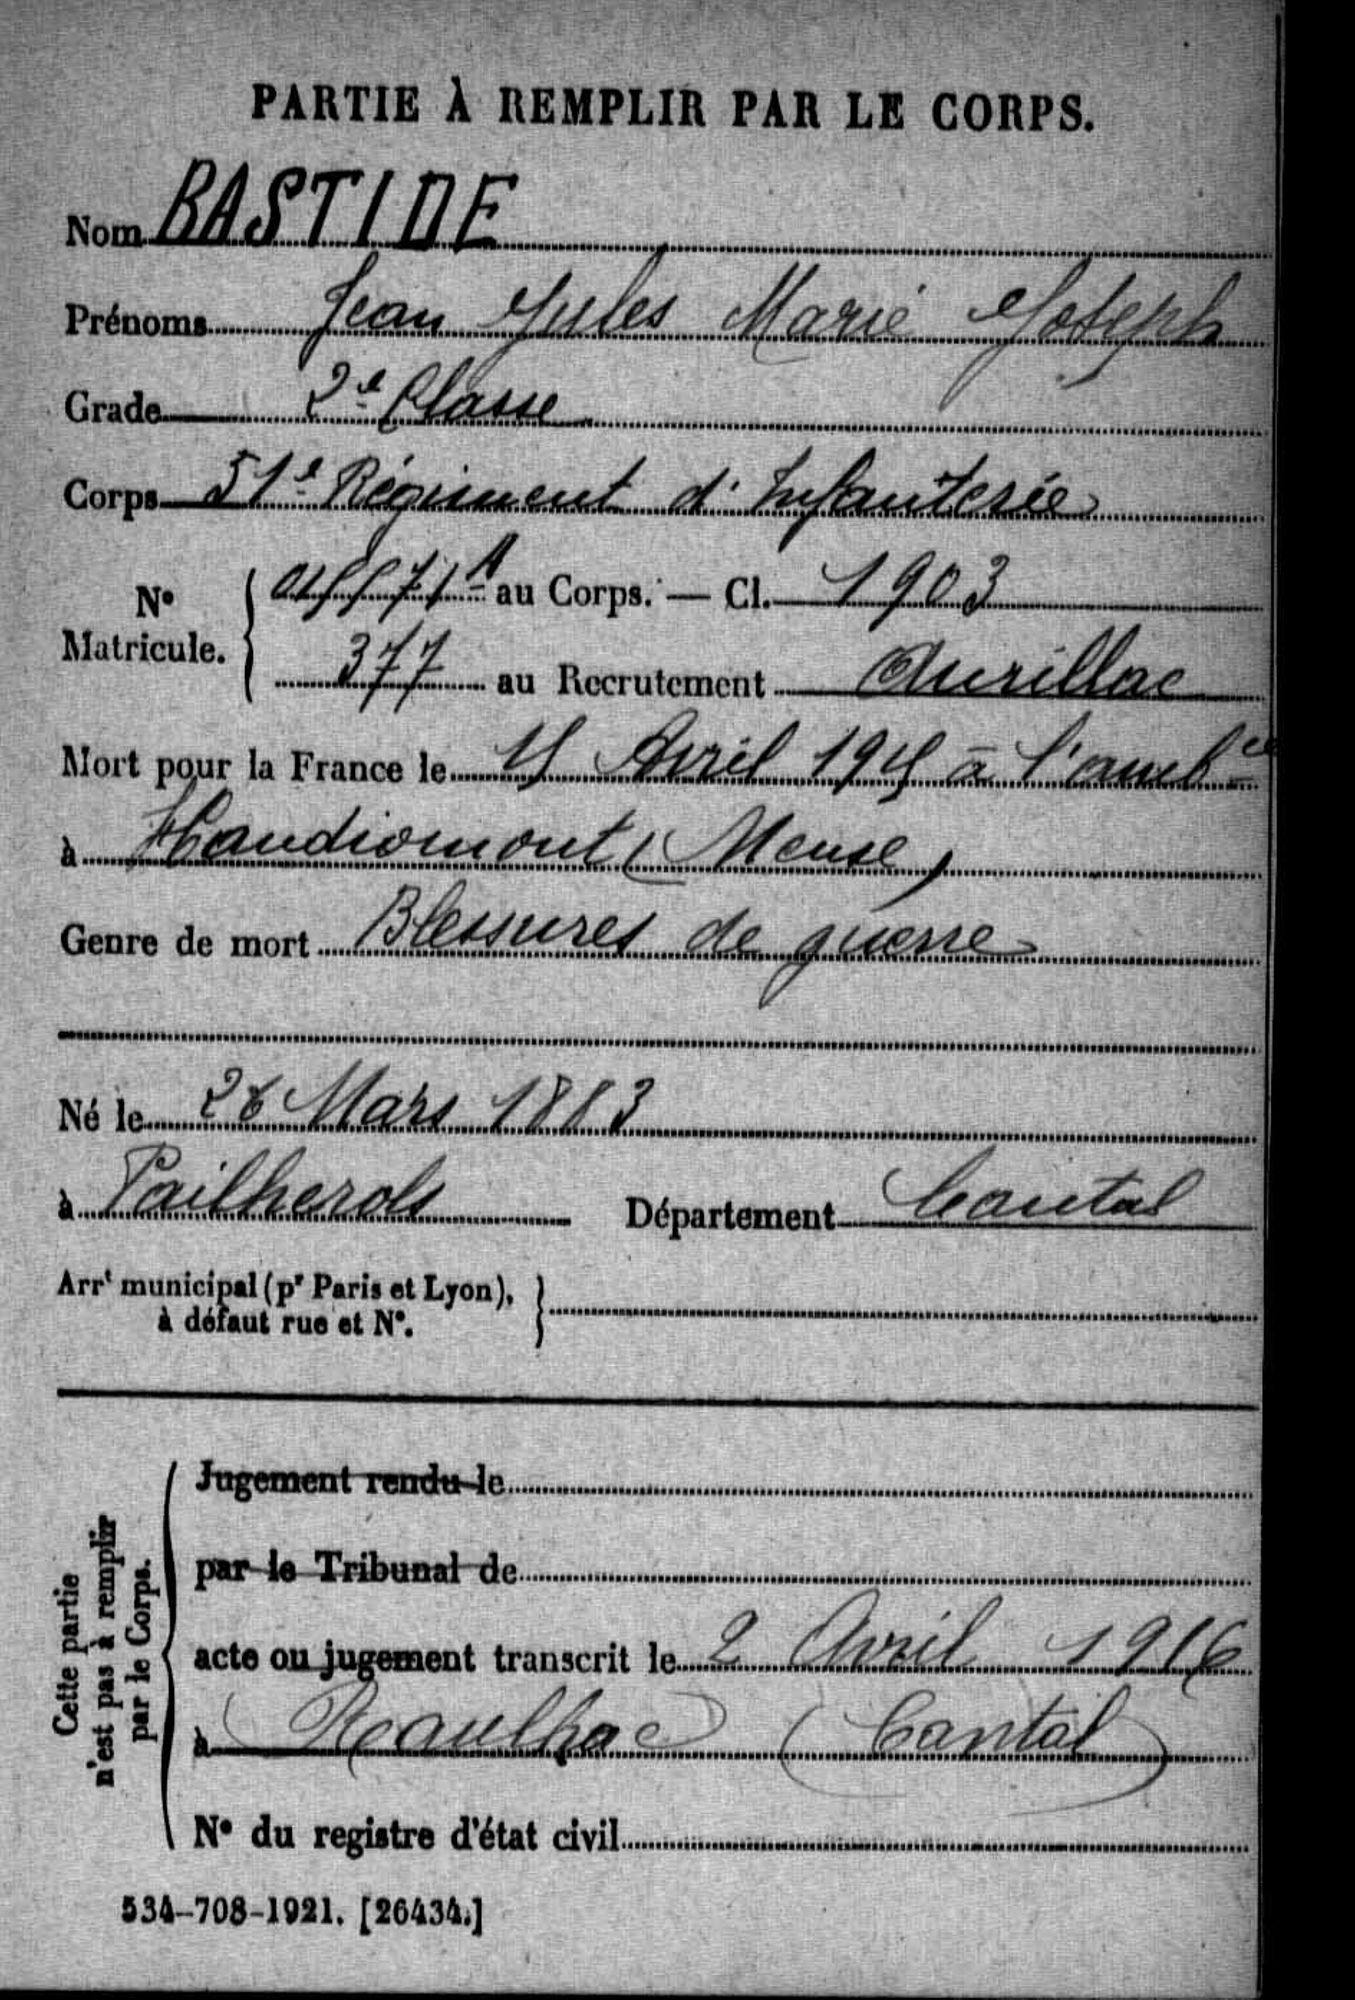 PARTIE À REMPLIR PAR LE CORPS.
Nom BASTIDE
Prénoms Jean Jules Marie Joseph
Grade 2e Classe
Corps 51e Régiment d'Infanterie
No Matricule. au Corps. — Cl. 1903
377 au Recrutement Aurillac
Mort pour la France le 15 Avril 1915 à l'ambce
à Haudiomont (Meuse)
Genre de mort Blessures de guerre
Né le 26 Mars 1883
à Pailherols Département Cantal
Arrt municipal (pr Paris et Lyon),
à défaut rue et No.
Cette partie
n'est pas à remplir
par le Corps.
Jugement rendu le
par le Tribunal de
acte ou jugement transcrit le 2 Avril 1916
à Raulhac (Cantal)
No du registre d'état civil
534-708-1921. [26434.]